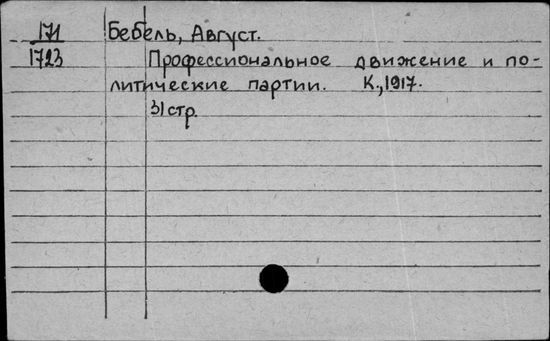 171 Бебель, Август.
1723 Профессиональное движение и по-
литические партии. К., 1917.
31 стр.